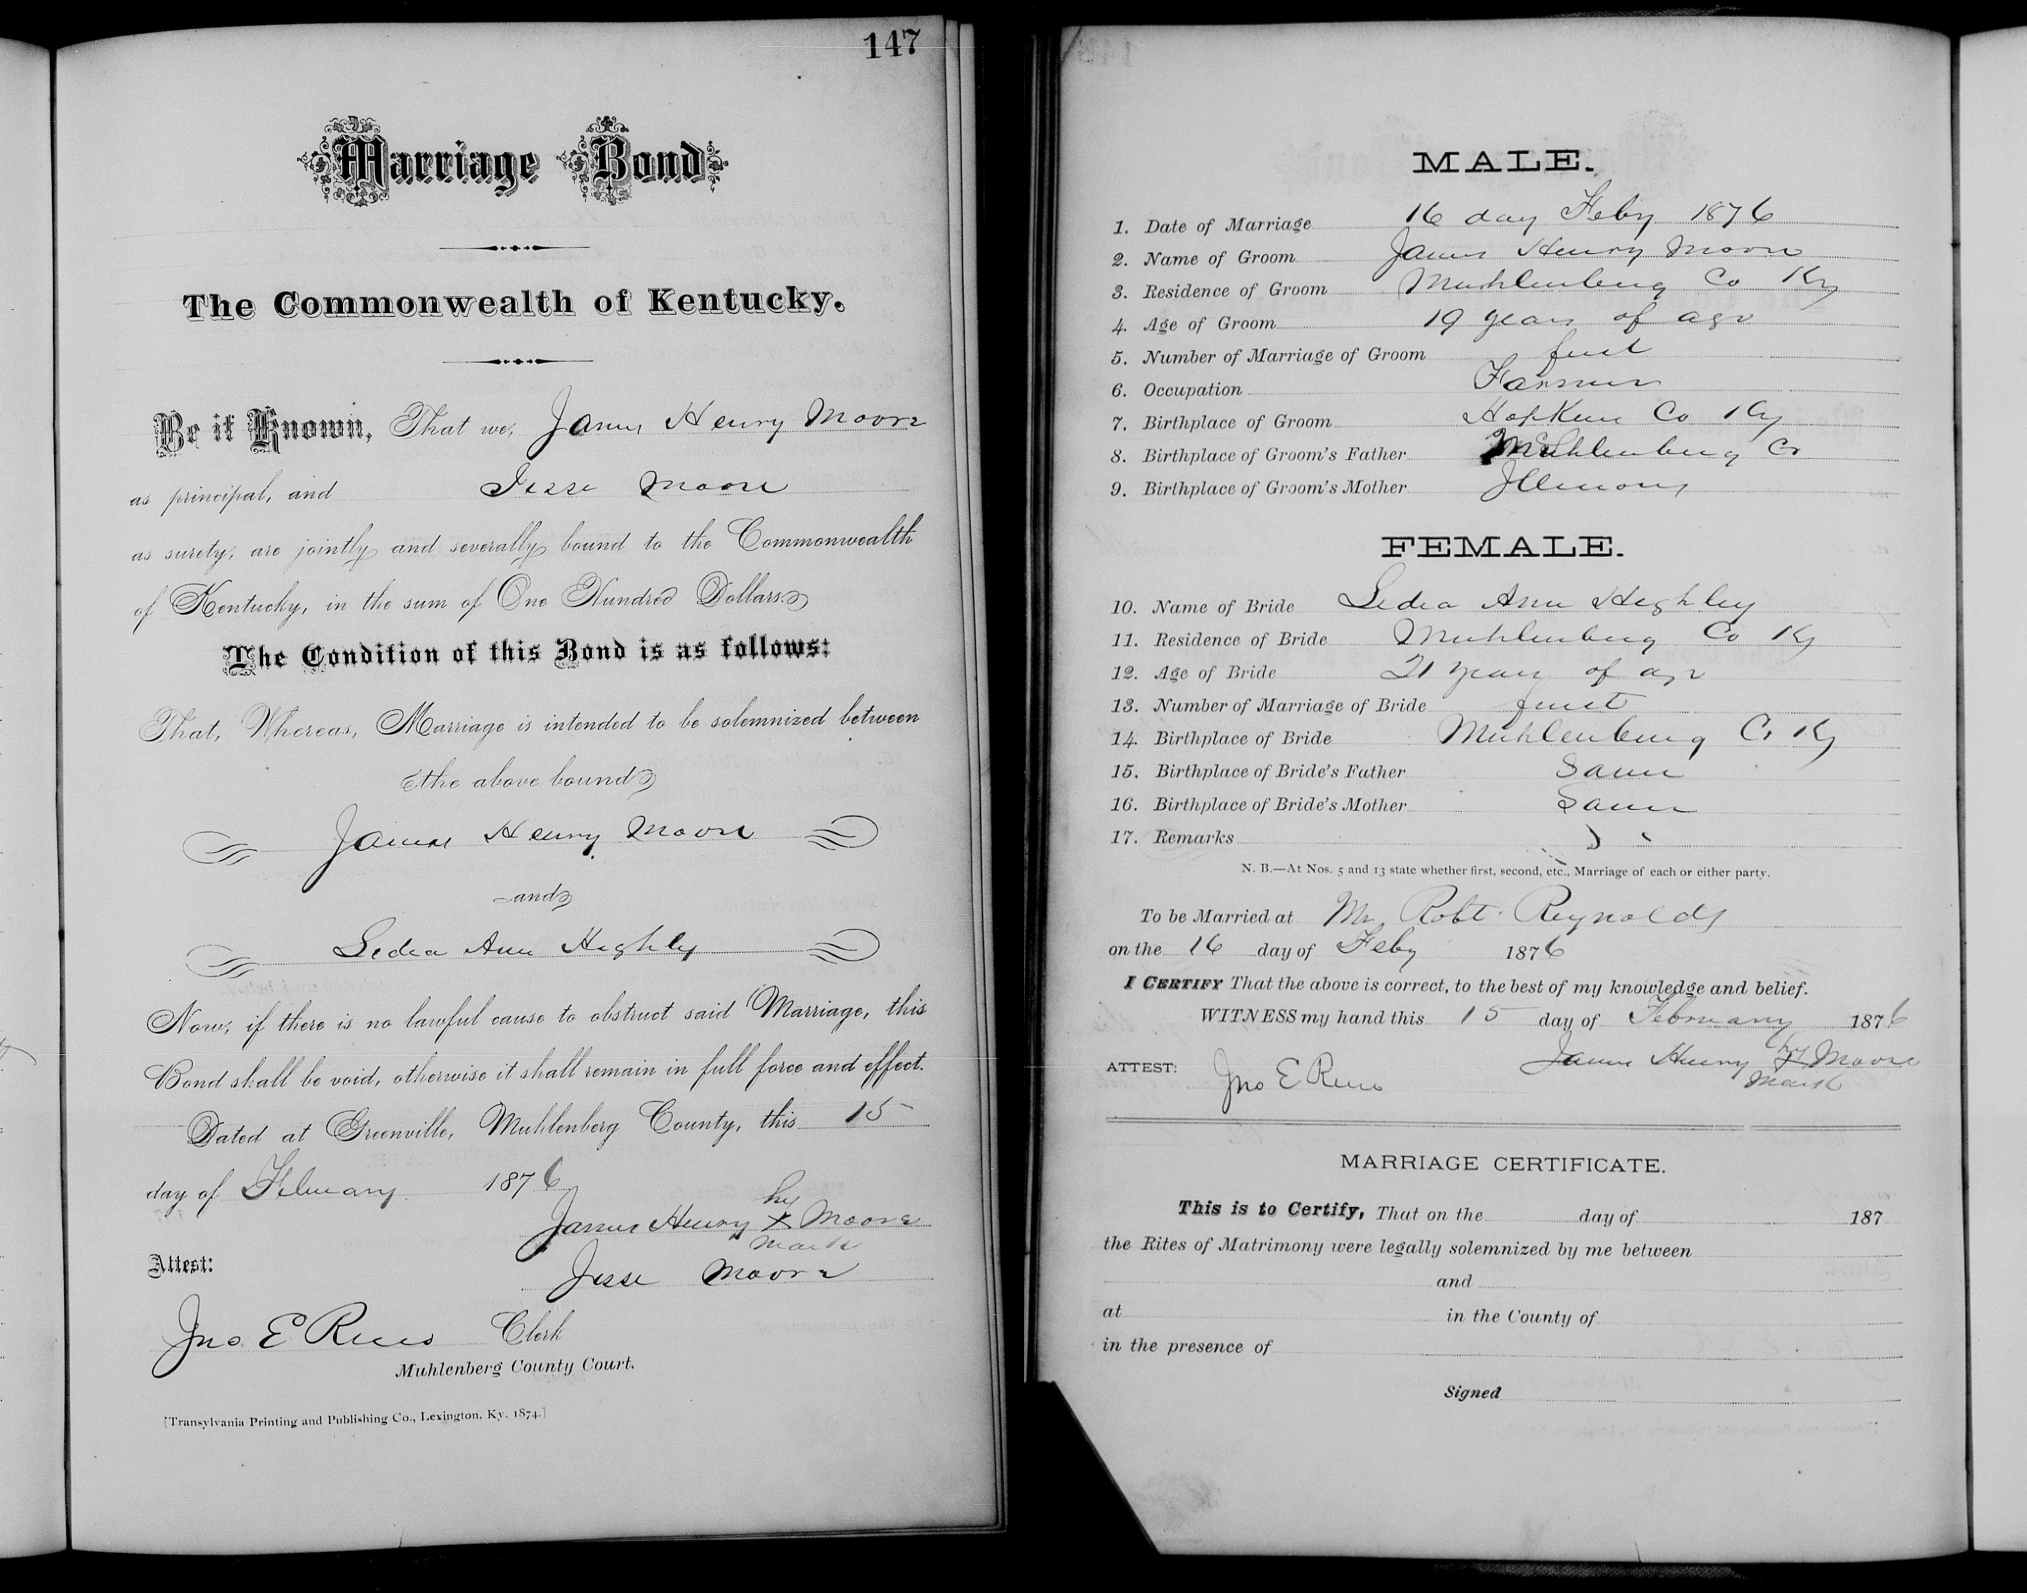 147
Marriage Bond
The Commonwealth of Kentucky.
Be it Known, That we, James Henry Moore
as principal, and Jesse Moore
as surety, are jointly and severally bound to the Commonwealth
of Kentucky, in the sum of One Hundred Dollars.
The Condition of this Bond is as follows:
That, Whereas, Marriage is intended to be solemnized between
the above bound
James Henry Moore
and
Ledea Ann Highley
Now, if there is no lawful cause to obstruct said Marriage, this
Bond shall be void, otherwise it shall remain in full force and effect.
Dated at Greenville, Muhlenberg County, this 15
day of February 1876
his
James Henry X Moore
mark
Attest:
Jesse Moore
Jno. E Reno Clerk
Muhlenberg County Court.
[Transylvania Printing and Publishing Co., Lexington, Ky. 1874.]
MALE.
1. Date of Marriage 16 day Feby 1876
2. Name of Groom James Henry Moore
3. Residence of Groom Muhlenberg Co Ky
4. Age of Groom 19 years of age
5. Number of Marriage of Groom first
6. Occupation Farmer
7. Birthplace of Groom Hopkins Co Ky
8. Birthplace of Groom's Father Muhlenberg Co
9. Birthplace of Groom's Mother Illinois
FEMALE.
10. Name of Bride Ledea Ann Highley
11. Residence of Bride Muhlenberg Co Ky
12. Age of Bride 21 years of age
13. Number of Marriage of Bride first
14. Birthplace of Bride Muhlenberg Co Ky
15. Birthplace of Bride's Father Same
16. Birthplace of Bride's Mother Same
17. Remarks
N. B.—At Nos. 5 and 13 state whether first, second, etc., Marriage of each or either party.
To be Married at Mr. Robt. Reynolds
on the 16 day of Feby 1876
I CERTIFY That the above is correct, to the best of my knowledge and belief.
WITNESS my hand this 15 day of February 1876
his
James Henry X Moore
mark
ATTEST: Jno E Reno
MARRIAGE CERTIFICATE.
This is to Certify, That on the day of 187
the Rites of Matrimony were legally solemnized by me between
and
at in the County of
in the presence of
Signed